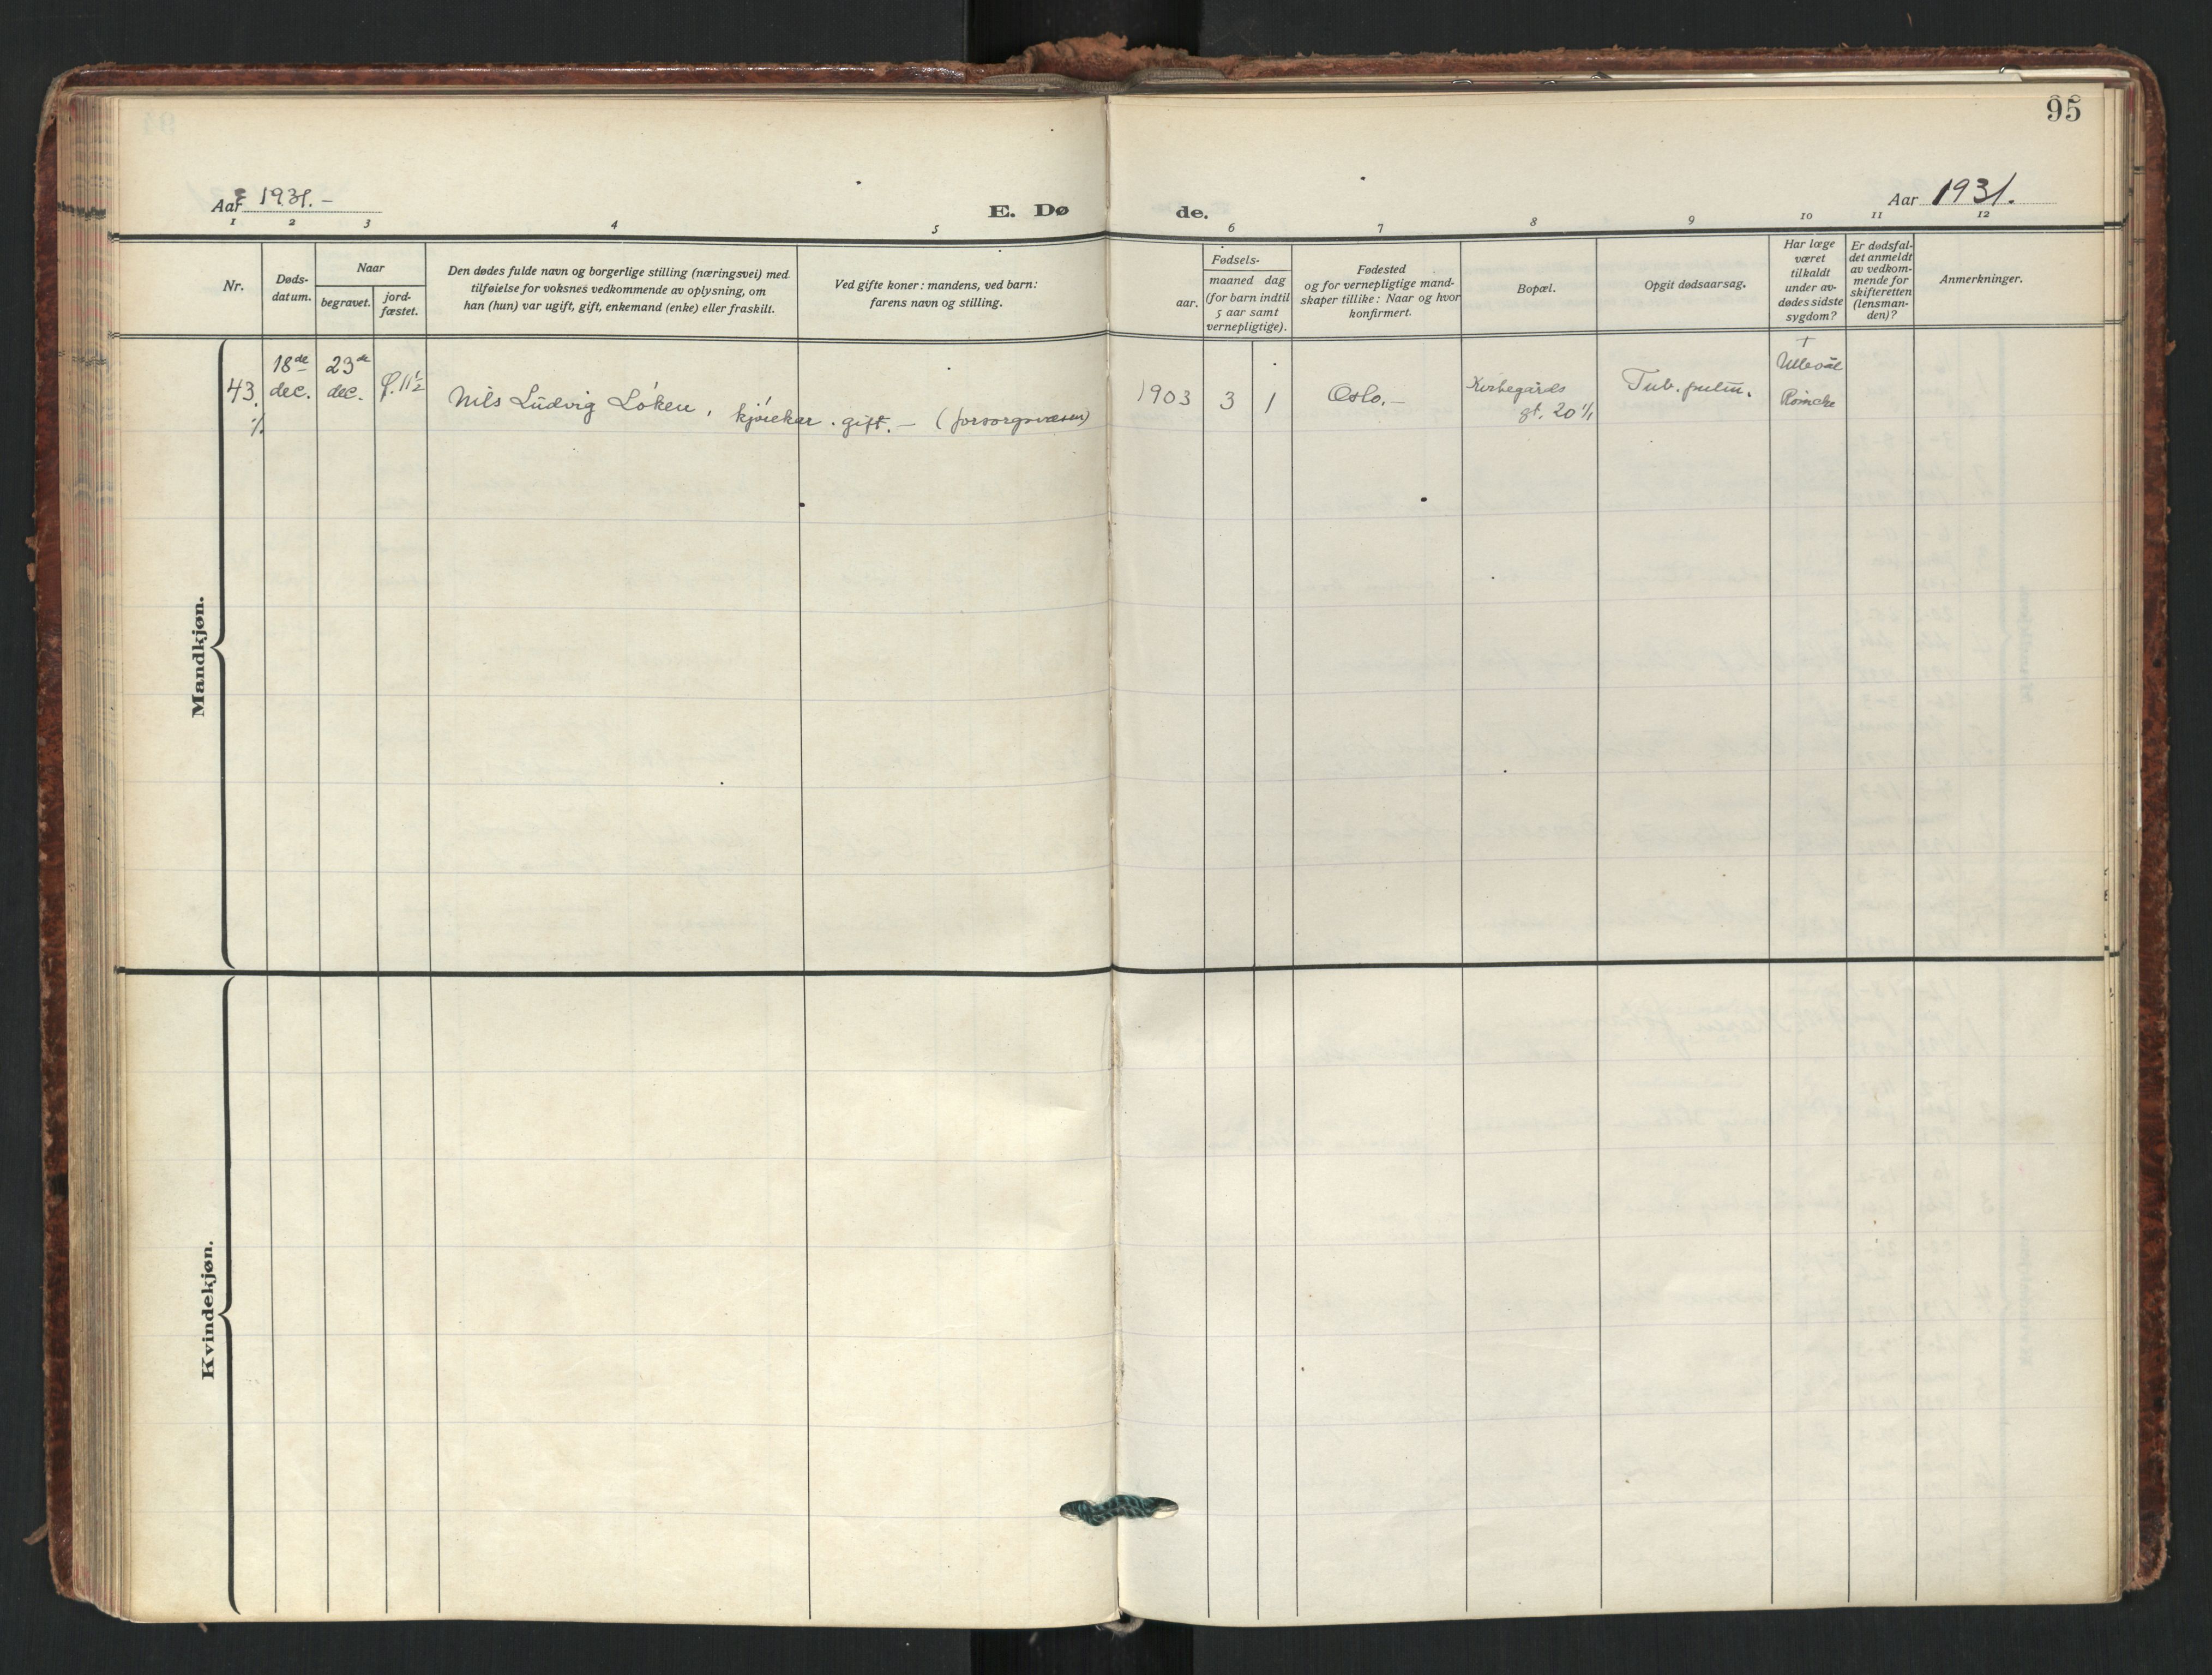 95
Aar 1931. –
E. Dø
de.
Aar 1931.
1 2 3 4 5 6 7 8 9 10 11 12
Nr.
Døds-
datum.
Naar
begravet.
jord-
fæstet.
Den dødes fulde navn og borgerlige stilling (næringsvei) med
tilføielse for voksnes vedkommende av oplysning, om
han (hun) var ugift, gift, enkemand (enke) eller fraskilt.
Ved gifte koner: mandens, ved barn:
farens navn og stilling.
Fødsels-
aar.
maaned dag
(for barn indtil
5 aar samt
vernepligtige).
Fødested
og for vernepligtige mand-
skaper tillike: Naar og hvor
konfirmert.
Bopæl.
Opgit dødsaarsag.
Har læge
været
tilkaldt
under av-
dødes sidste
sygdom?
Er dødsfal-
det anmeldt
av vedkom-
mende for
skifteretten
(lensman-
den)?
Anmerkninger.
Mandkjøn.
43
18de
dec.
23de
dec.
11½
Nils Ludvig Løken, kjørekar. gift. – (forsorgsvæsen)
1903
3
1
Oslo. –
Kirkegårds
gt. 20
Tub. pulm.
+
Ullevål
Kvindekjøn.